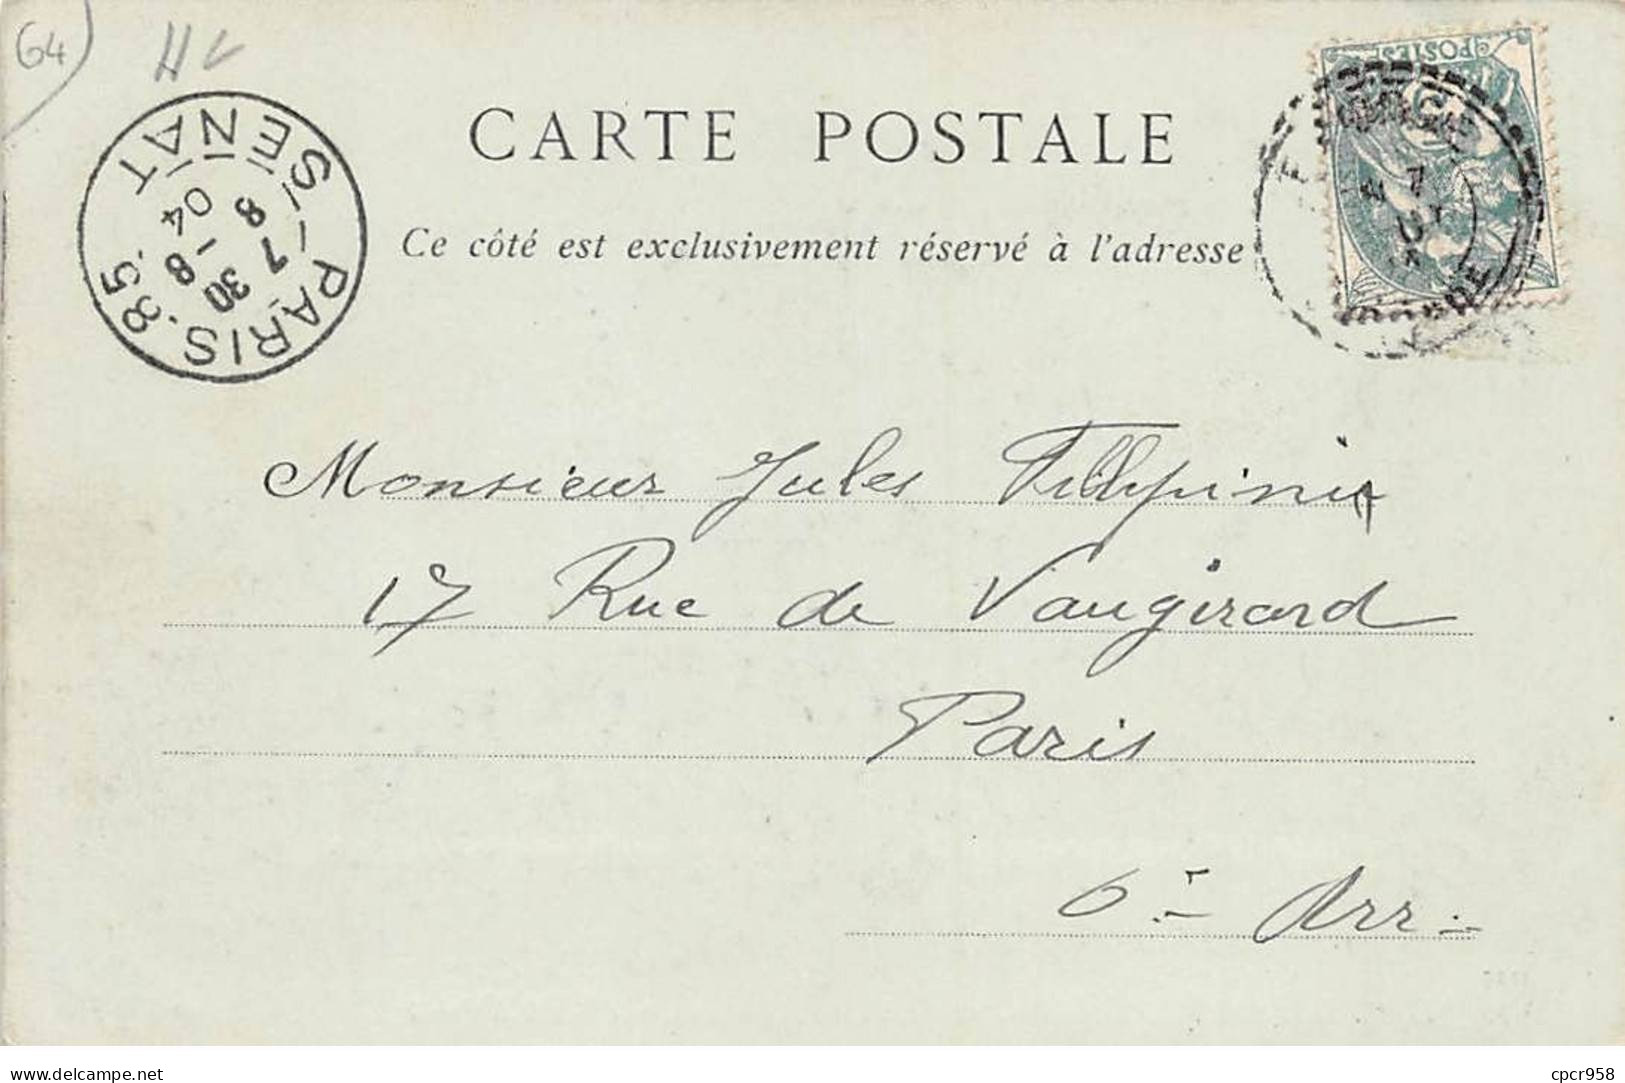 64
CARTE POSTALE
Ce côté est exclusivement réservé à l'adresse
POSTES
PARIS. 85. S/-
SENAT
7 30
8 -8
04
Monsieur Jules Fillipini
17 Rue de Vaugirard
Paris
6e Arr.
delcampe.net
cpcr958